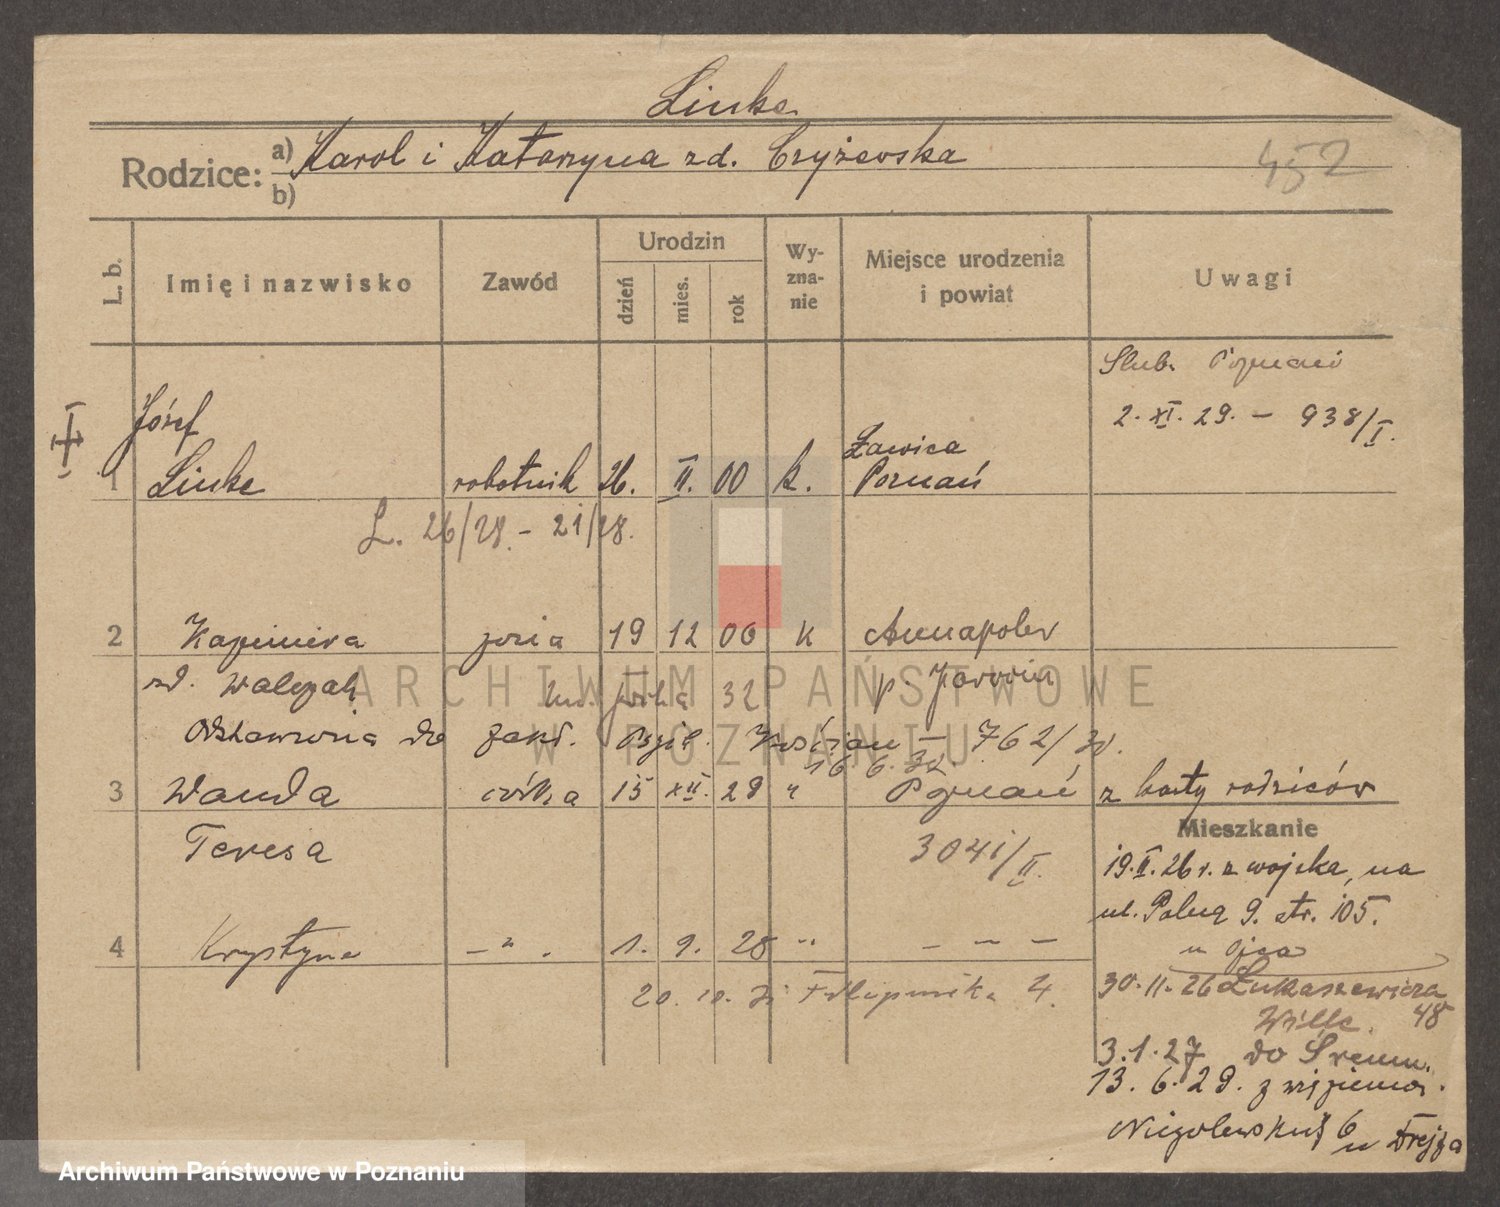 Linke
Rodzice: a) Karol i Katarzyna zd. Czyżewska
b)
452
L. b.
Imię i nazwisko
Zawód
Urodzin
dzień
mies.
rok
Wy-
zna-
nie
Miejsce urodzenia
i powiat
Uwagi
Ślub. Poznań
2. XI. 29. – 938/I.
Józef
1 Linke robotnik 26. II. 00 k. Ławica
Poznań
L. 26/28. – 21/28.
2 Kazimiera żona 19 12 06 k Annapole
zd. Walczak 32 p Jarocin
Odstawiona do zakł. Psych. Kościan – 762/32.
16. 6. 32.
3 Wanda córka 15 XII. 29 " Poznań z karty rodziców
Teresa 3041/II.
Mieszkanie
19. II. 26 r. z wojska, na
ul. Polną 9. str. 105.
u ojca
4 Krystyna – " . 1. 9. 28 " – – –
20. 10. 4.
30. 11. 26 Łukaszewicza
48
Wilk.
3. 1. 27 do Śrem.
13. 6. 29. z
Niegolewskich 6
u
ARCHIWUM PAŃSTWOWE
W POZNANIU
Archiwum Państwowe w Poznaniu